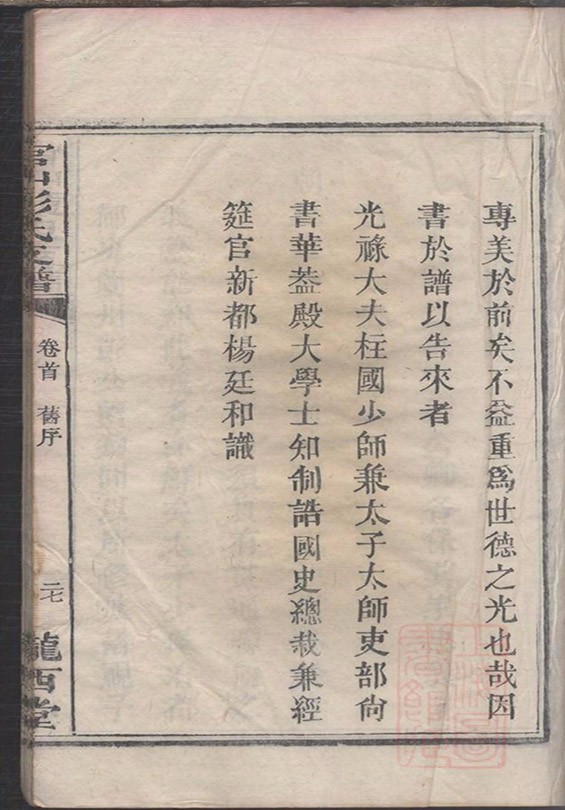 專美於前矣不益重爲世德之光也哉因
書於譜以告來者
光祿大夫柱國少師兼太子太師吏部尙
書華葢殿大學士知制誥國史總裁兼經
筵官新都楊廷和識
彭氏支譜
卷首 舊序
二七
隴西堂